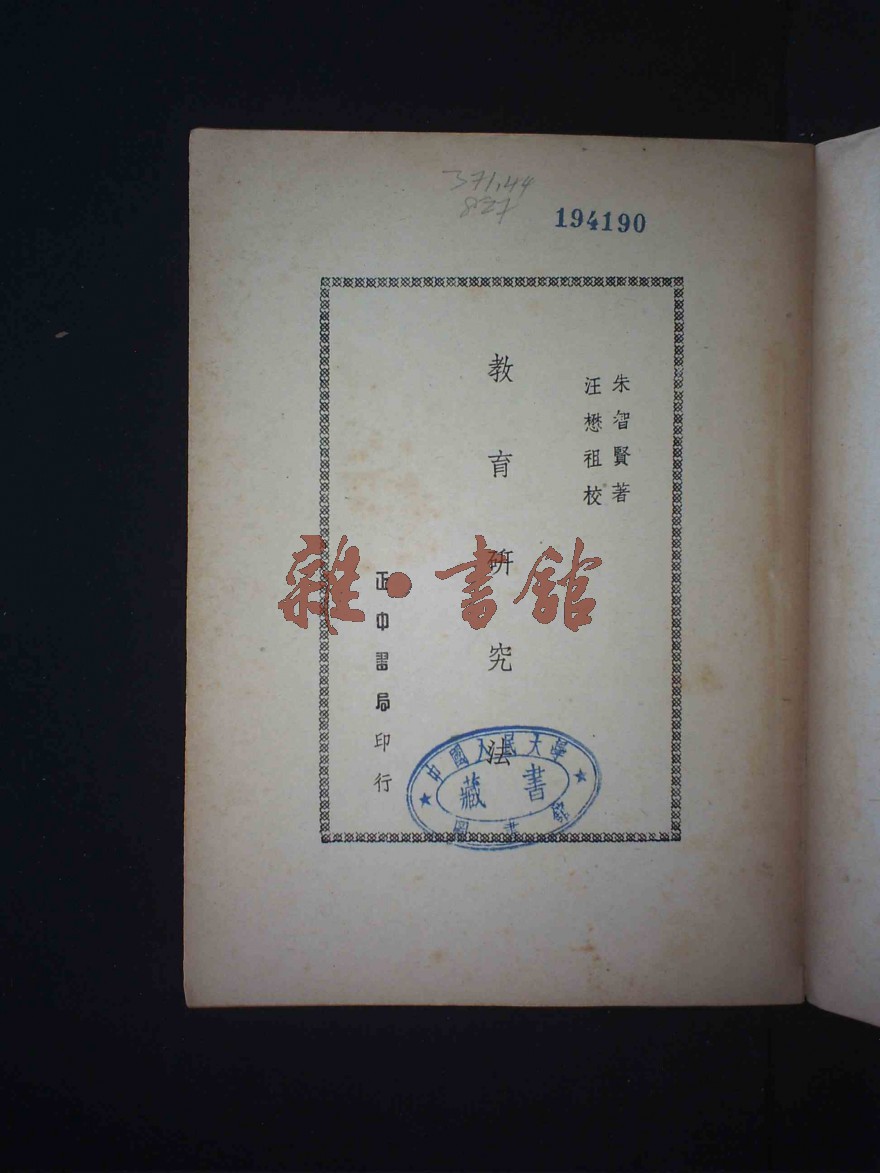 371.44
827
194190
朱智賢著
汪懋祖校
教育研究法
正中書局印行
雜·書館
中國人民大學
藏書
圖書館